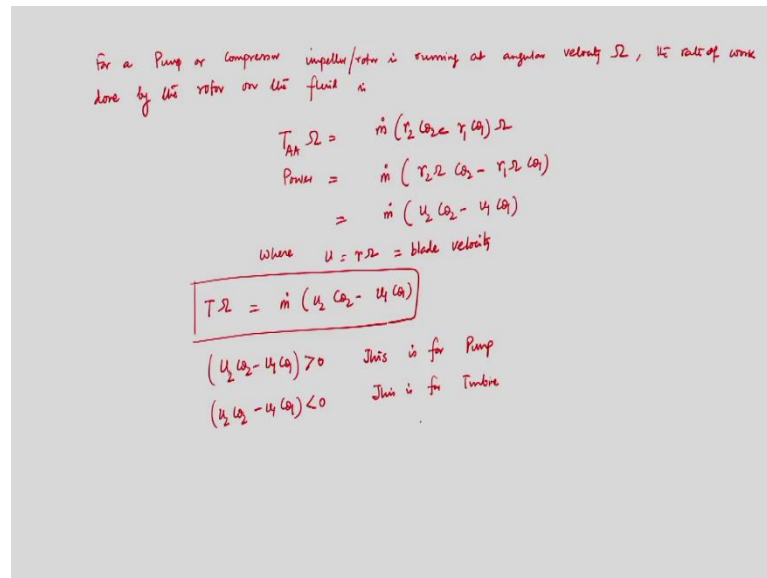 For a Pump or Compressor impeller/rotor is running at angular velocity Ω, the rate of work
done by the rotor on the fluid is
T_AA Ω = ṁ (r₂ Cθ₂ - r₁ Cθ₁) Ω
Power = ṁ ( r₂ Ω Cθ₂ - r₁ Ω Cθ₁)
= ṁ ( u₂ Cθ₂ - u₁ Cθ₁)
Where u = r Ω = blade velocity
T Ω = ṁ ( u₂ Cθ₂ - u₁ Cθ₁)
(u₂ Cθ₂ - u₁ Cθ₁) > 0 This is for Pump
(u₂ Cθ₂ - u₁ Cθ₁) < 0 This is for Turbine